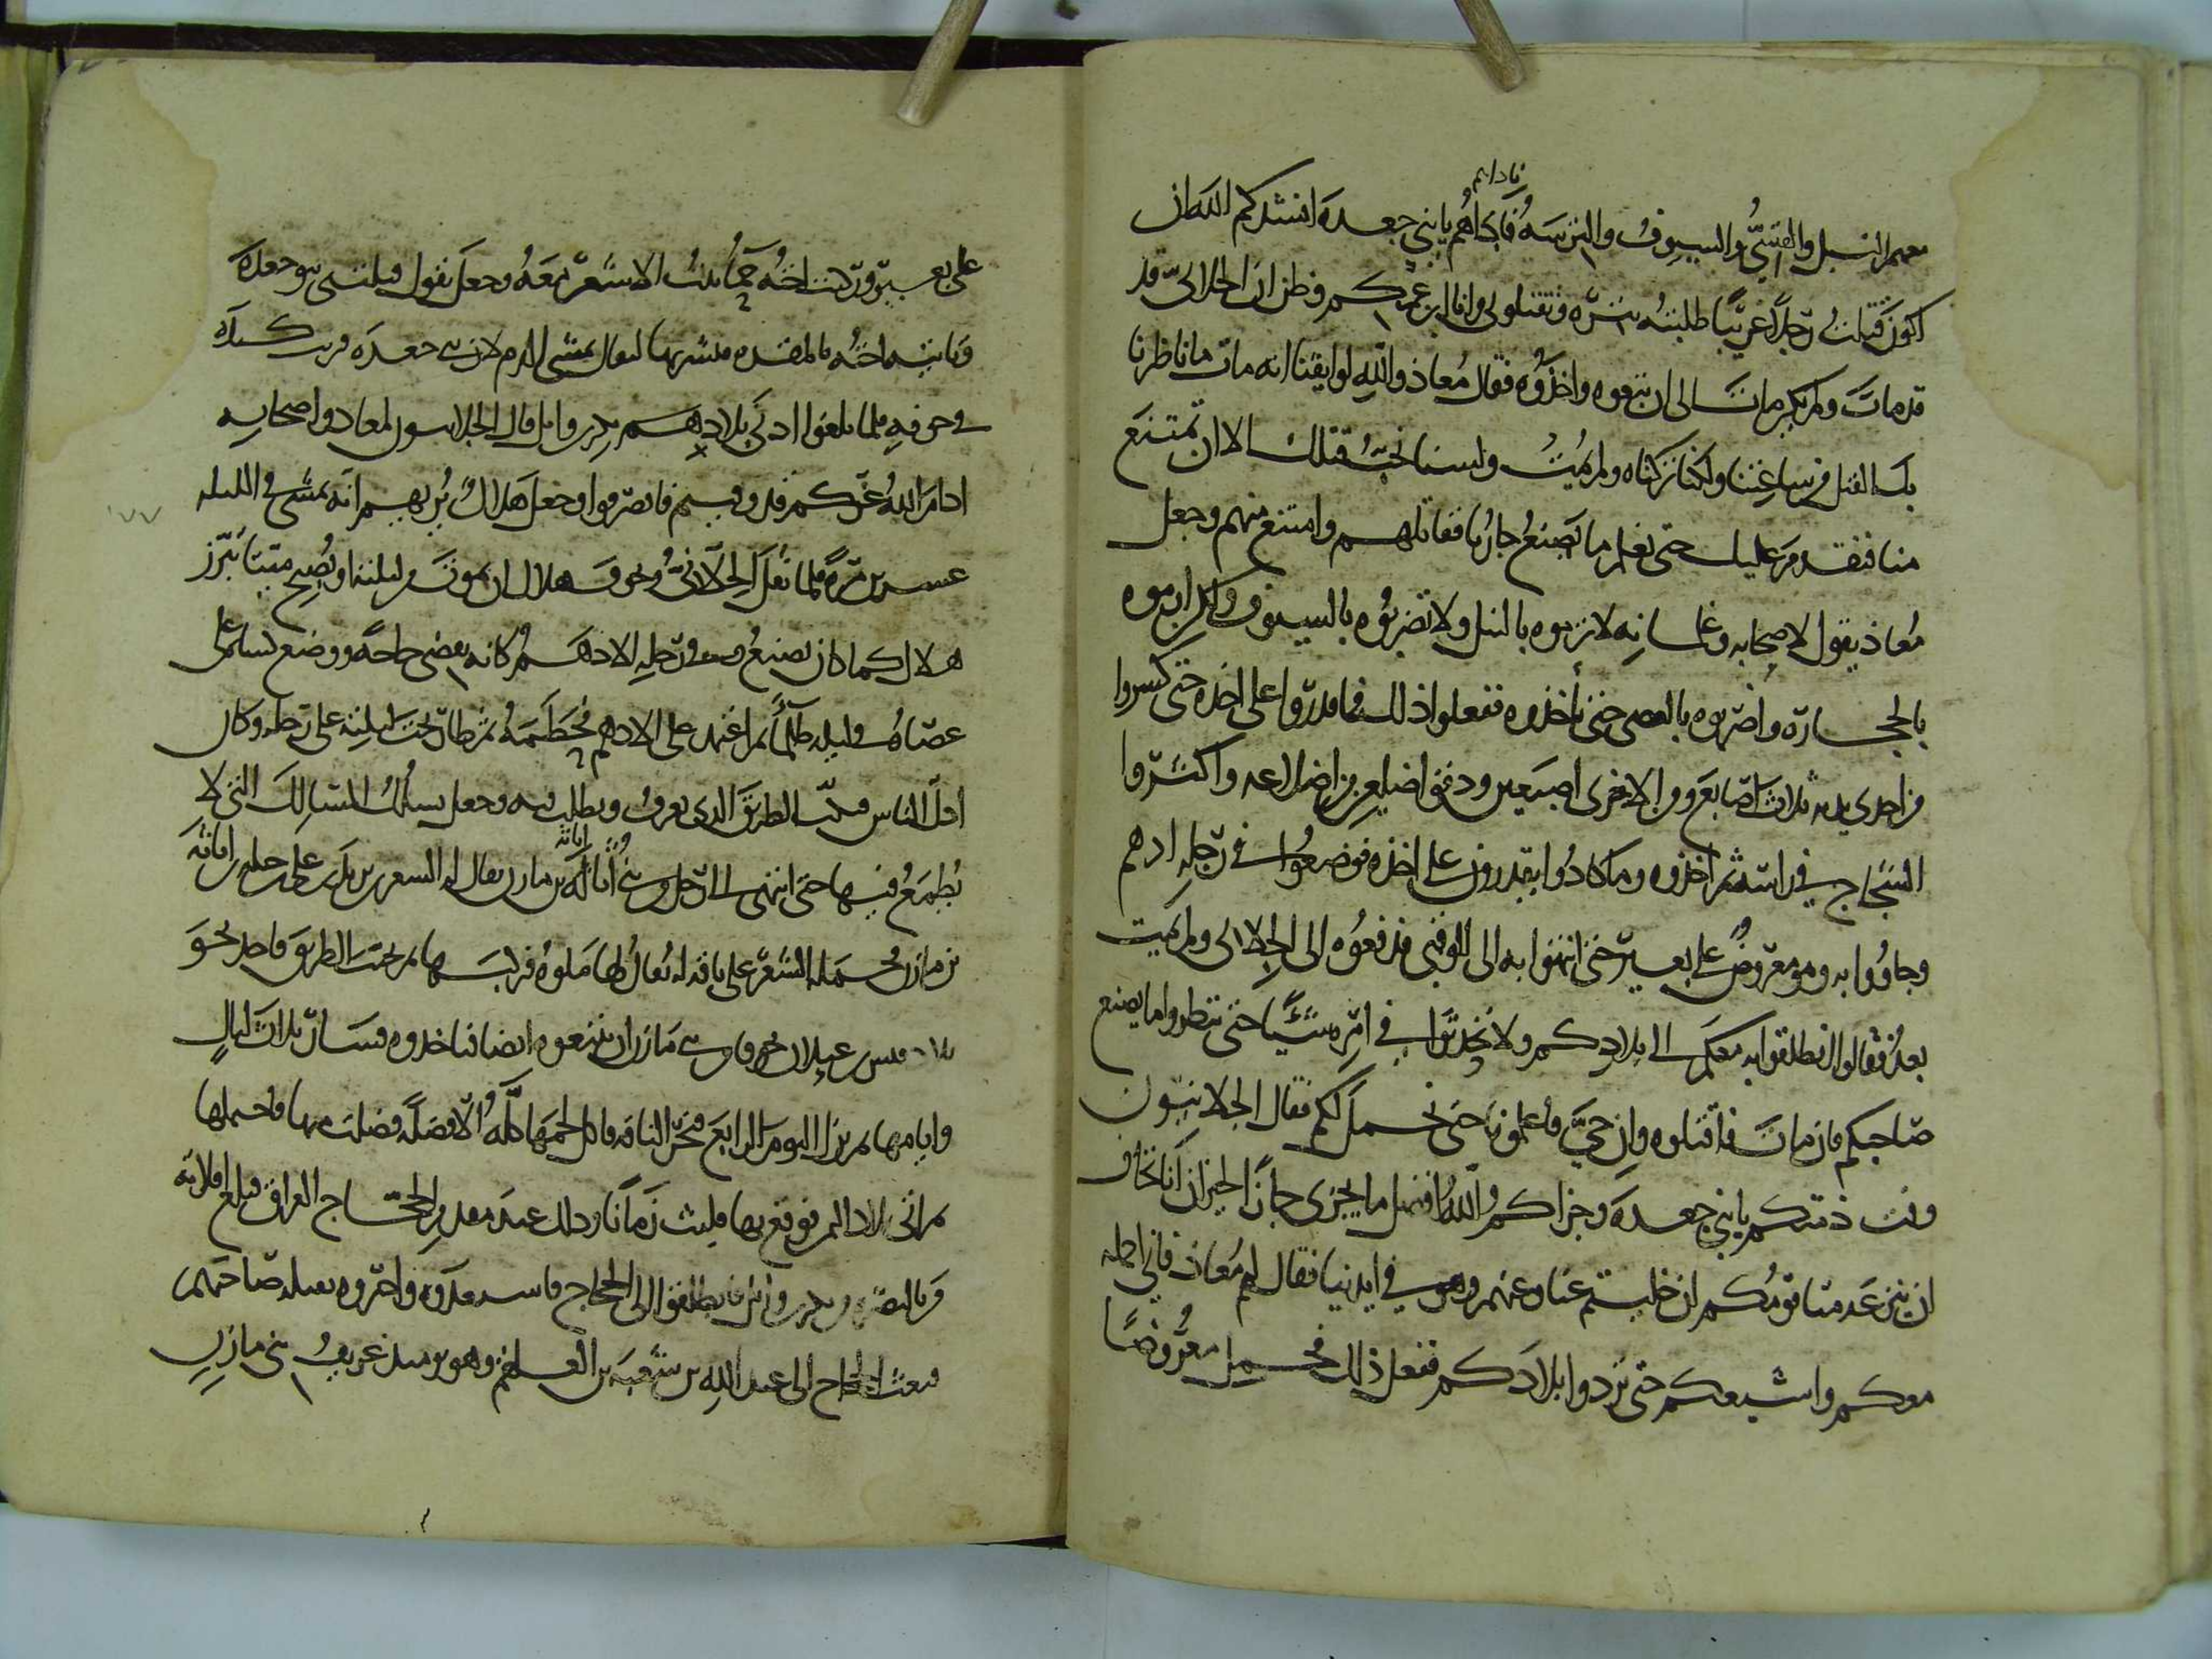 ناداهم
معهم النبل والقسيّ والسيوف والترسة فناداهم يا بني جعدة انشدكم الله ان
اكون قتلت رجلا غريبا طلبته بترّه وتقتلوني وانا ابن عمكم وظن ان الجلانيّ قد
قد مات ولم يكن مات الى ان تبعوه واخذوه فقال معاذ والله لو ايقنا انه مات ما ناظرنا
بك القتل من ساعتنا ولكنا تركناه ولم يمت ولسنا نحب قتلك الا ان تمتنع
منا فنقدم عليك حتى نعلم ما يصنع جارنا فقاتلهم وامتنع منهم وجعل
معاذ يقول لاصحابه وغلمانه لا ترموه بالنبل ولا تضربوه بالسيوف ولكن ارموه
بالحجارة واضربوه بالعصي حتى تأخذوه ففعلوا ذلك فما قدروا على اخذه حتى كسروا
من احدى يديه ثلاث اصابع ومن الاخرى اصبعين ودقوا ضلعين من اضلاعه واكثروا
الشجاج في راسه ثم اخذوه وما كادوا يقدرون على اخذه فوضعوا في رجله ادهم
وجاؤوا به وهو معروض على بعير حتى انتهوا به الى الوقبي فدفعوه الى الجلاني ولم يمت
بعد فقالوا انطلقوا به معكم الى بلادكم ولا تحدثوا في امره شيئا حتى تنظروا ما يصنع
صاحبكم فان مات فاقتلوه وان حيّ فاعلمونا حتى نحمل لكم فقال الجلانيون
وفت ذمتكم يا بني جعدة وجزاكم الله افضل ما يجزي جار الجيران انا نخاف
ان ينزعه منا قومكم ان خليتم عنا وعنهم وهو في ايدينا فقال لهم معاذ فاني احمله
معكم واشيعكم حتى تردوا بلادكم ففعل ذلك فحمل معروضا
على بعير وركبت اخته جما بنت الاسعر معه وجعل يقول قتلتني بنو جعدة
وتاتيه اخته بالمغرة فيشربها ليقال يمشي بالدم لان بني جعدة فرت كبده
في جوفه فلما بلغوا ادنى بلادهم بكر وائل قال الجلانيون لمعاذ واصحابه
ادام الله عزكم قد وفيتم فانصرفوا وجعل هلال يريهم انه يمشي في الليلة
عشرين مرة فلما ثقل الجلاني وتخوف هلال ان يموت من ليلته او يصبح ميتا تبرز
هلال كما كان يصنع وفي رجله الادهم كانه يقضي حاجة ووضع كساه على
عصاه في ليلة ظلماء ثم اعتمد على الادهم فحطمه ثم طار تحت ليلته على رجله وكان
ادل الناس فتنكب الطريق الذي يعرف ويطلب فيه وجعل يسلك المسالك التي لا
يطمع فيها حتى انتهى الى رجل من بني اثاثة بن مازن يقال له السعر بن يزيد
اثاثة
بن مازن فحمله السعر على ناقة له يقال لها ملوة فركبها ثم تجنب الطريق فاخذ نحو
بلاد قيس بن عيلان خوفا من بني مازن ان يتبعوه ايضا فياخذوه فسار ثلاث ليال
وايامها ثم نزل اليوم الرابع فنحر الناقة فاكل لحمها كله الا فضلة فضلت منها فاحتملها
ثم اتى بلاد اليمن فوقع بها فلبث زمانا وذلك عند مقدم الحجاج العراق فبلغ افلاته
من بالبصرة من بكر وائل فانطلقوا الى الحجاج فاستعدوه واخبروه بقتله صاحبهم
فبعث الحجاج الى عبد الله بن شعبة بن العلقم وهو يومئذ عريف بني مازن